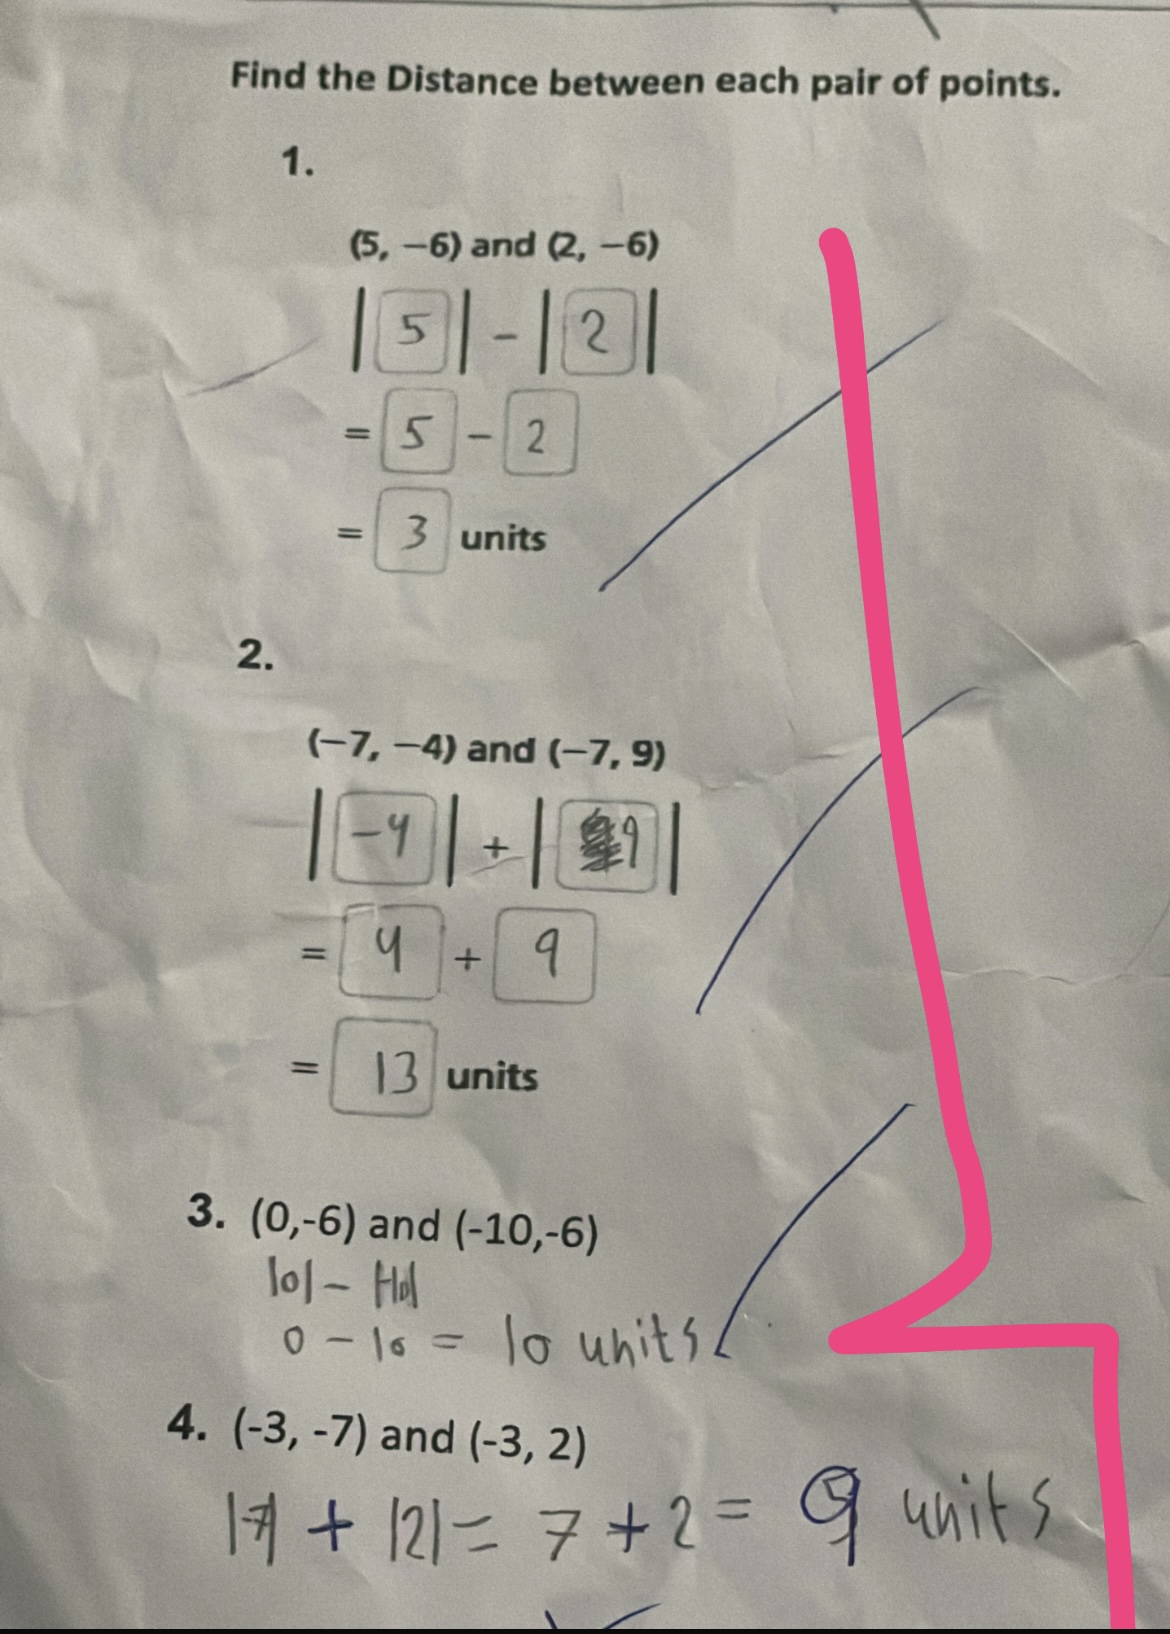 Find the Distance between each pair of points.
1.
(5, −6) and (2, −6)
|5| - |2|
= 5 - 2
= 3 units
2.
(−7, −4) and (−7, 9)
|-4| + |9|
= 4 + 9
= 13 units
3. (0,-6) and (-10,-6)
|0| - |-10|
0 - 10 = 10 units
4. (-3, -7) and (-3, 2)
|-7| + |2| = 7 + 2 = 9 units